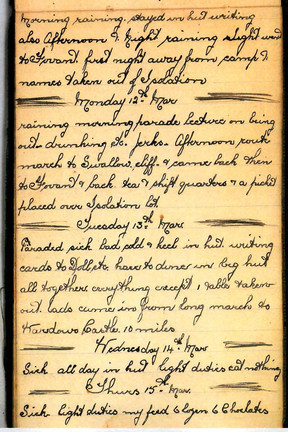 Morning raining. stayed in hut writing
also Afternoon & Night raining slight went
to Fovant. first night away from camp &
names taken out of Isolation
Monday 12th Mar
raining morning parade lecture on being
out drunking etc. Jerks. Afternoon route
march to Swallow cliff & came back then
to Fovant & back. tea & shift quarters & a picket
placed over Isolation lot
Tuesday 13th Mar.
Paraded sick bad cold & heel in hut writing
cards to Doll, etc. have to diner in big hut
all together everything except 1 table taken
out. lads came in from long march to
Wardows Castle. 10 miles
Wednesday 14th Mar
Sick all day in hut light duties eat nothing
Thurs 15th Mar.
Sick light duties my feed 6 Eggs & Choclates